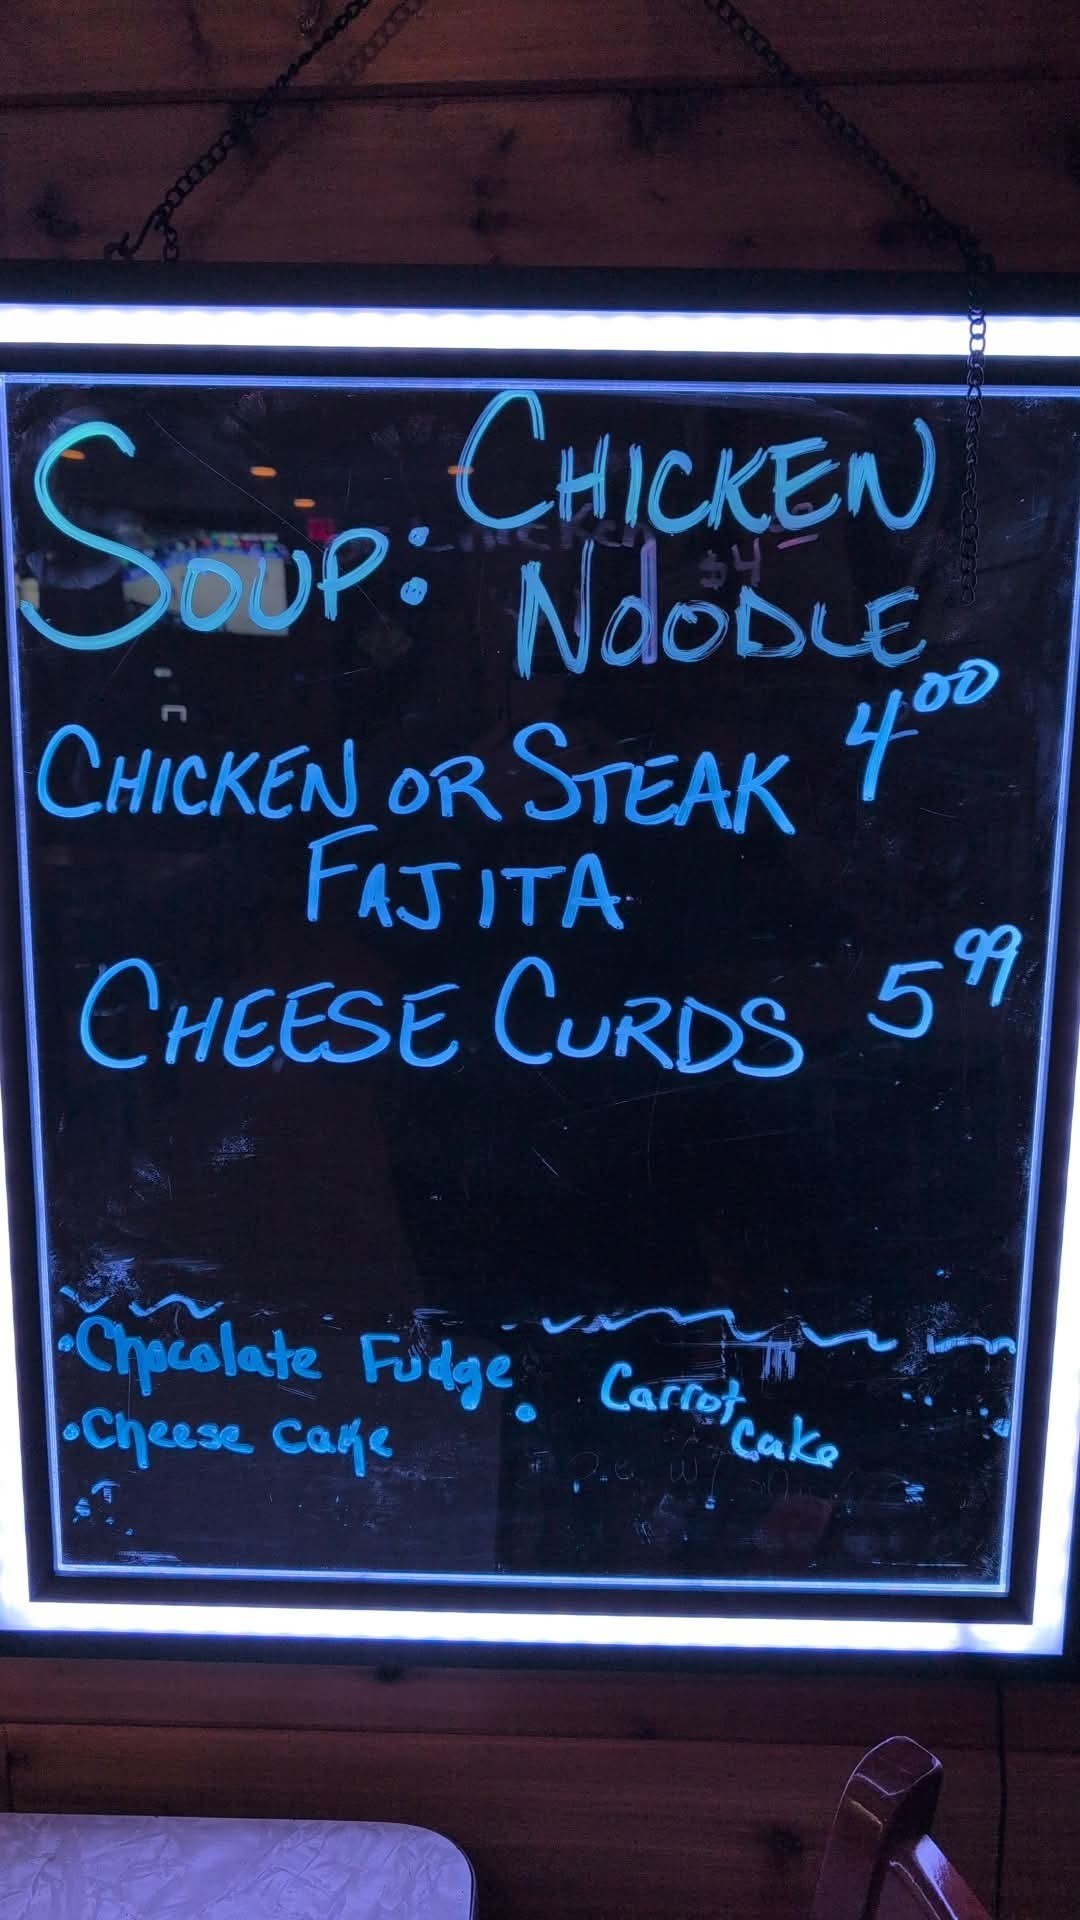 SOUP: CHICKEN
NOODLE
CHICKEN OR STEAK 4.00
FAJITA
CHEESE CURDS 5.99
• Chocolate Fudge
• Carrot
cake
• Cheese cake